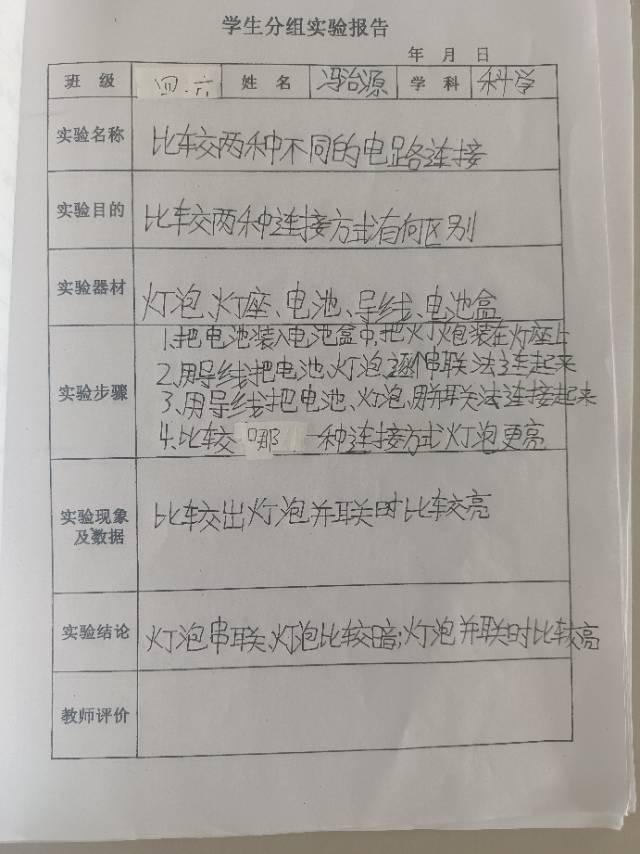 学生分组实验报告
年 月 日
班 级 四.六 姓 名 冯治源 学 科 科学
实验名称 比较两种不同的电路连接
实验目的 比较两种连接方式有何区别
实验器材 灯泡、灯座、电池、导线、电池盒
1.把电池装入电池盒中,把灯泡装在灯座上
2.用导线把电池、灯泡 串联法 起来
实验步骤
3.用导线把电池、灯泡,用并联法连接起来
4.比较哪一种连接方式灯泡更亮
实验现象 比较出灯泡并联时比较亮
及数据
实验结论 灯泡串联、灯泡比较暗;灯泡并联时比较亮
教师评价